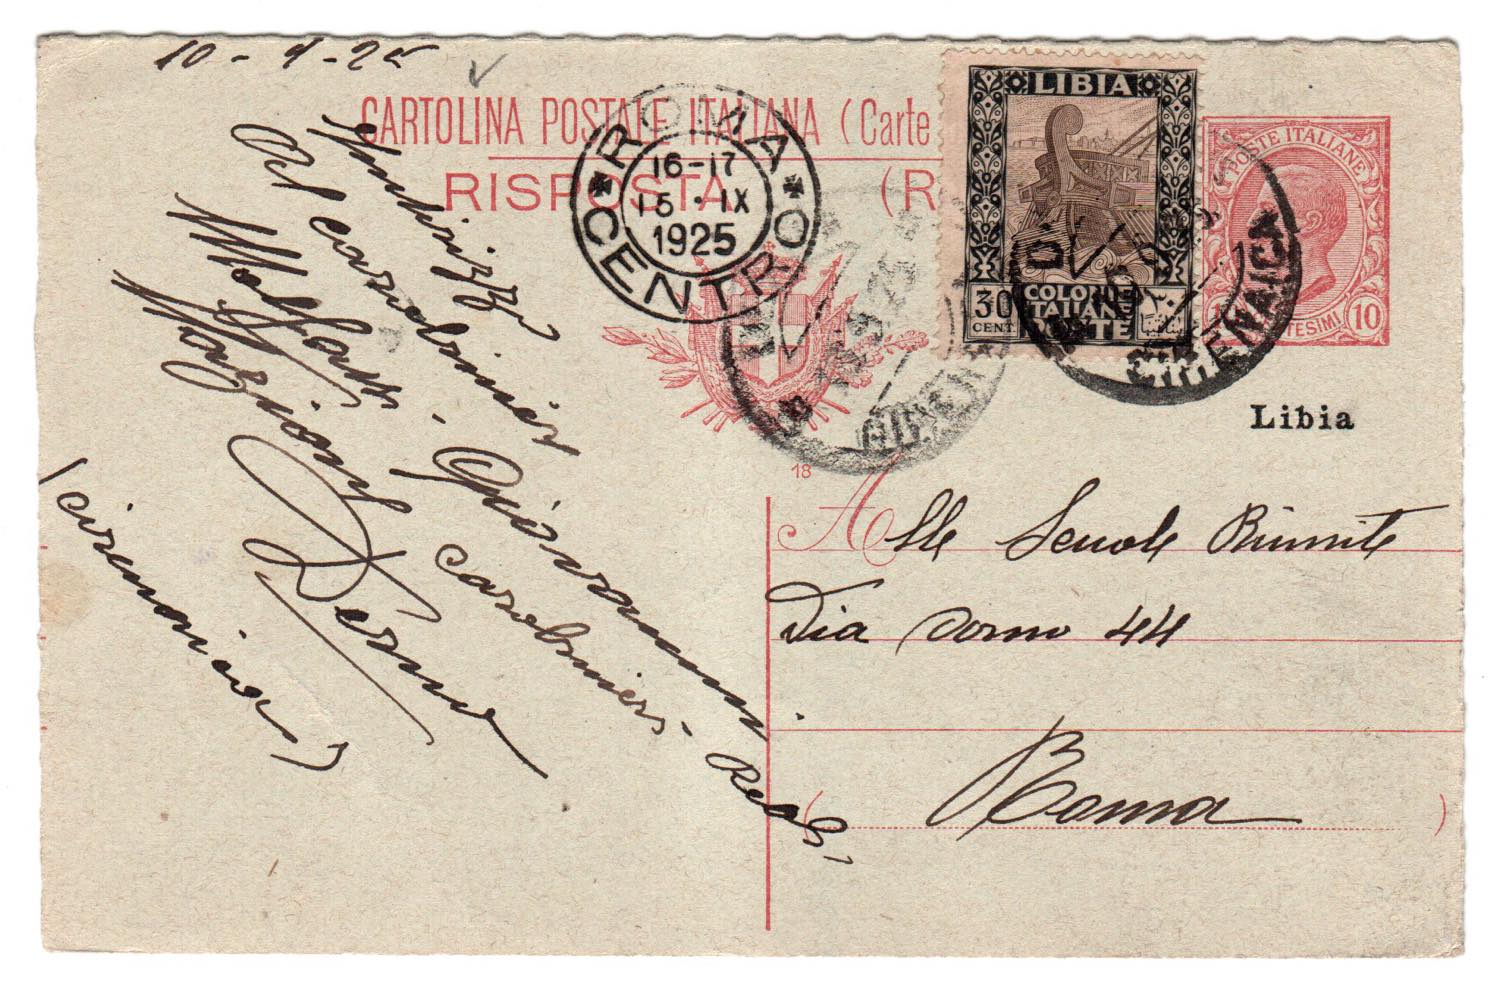 10-9-25
CARTOLINA POSTALE ITALIANA (Carte
RISPOSTA (R
ROMA CENTRO
16-17
15·IX
1925
LIBIA
30
CENT
COLONIE
ITALIANE
POSTE
POSTE ITALIANE
10
Libia
CIRENAICA
10·9·25
CIREN
18
Indirizzo
Al carabiniere
Giovanni
carabinieri Reali
Derna
(cirenaica)
Alle Scuole Riunite
Via Arno 44
Roma